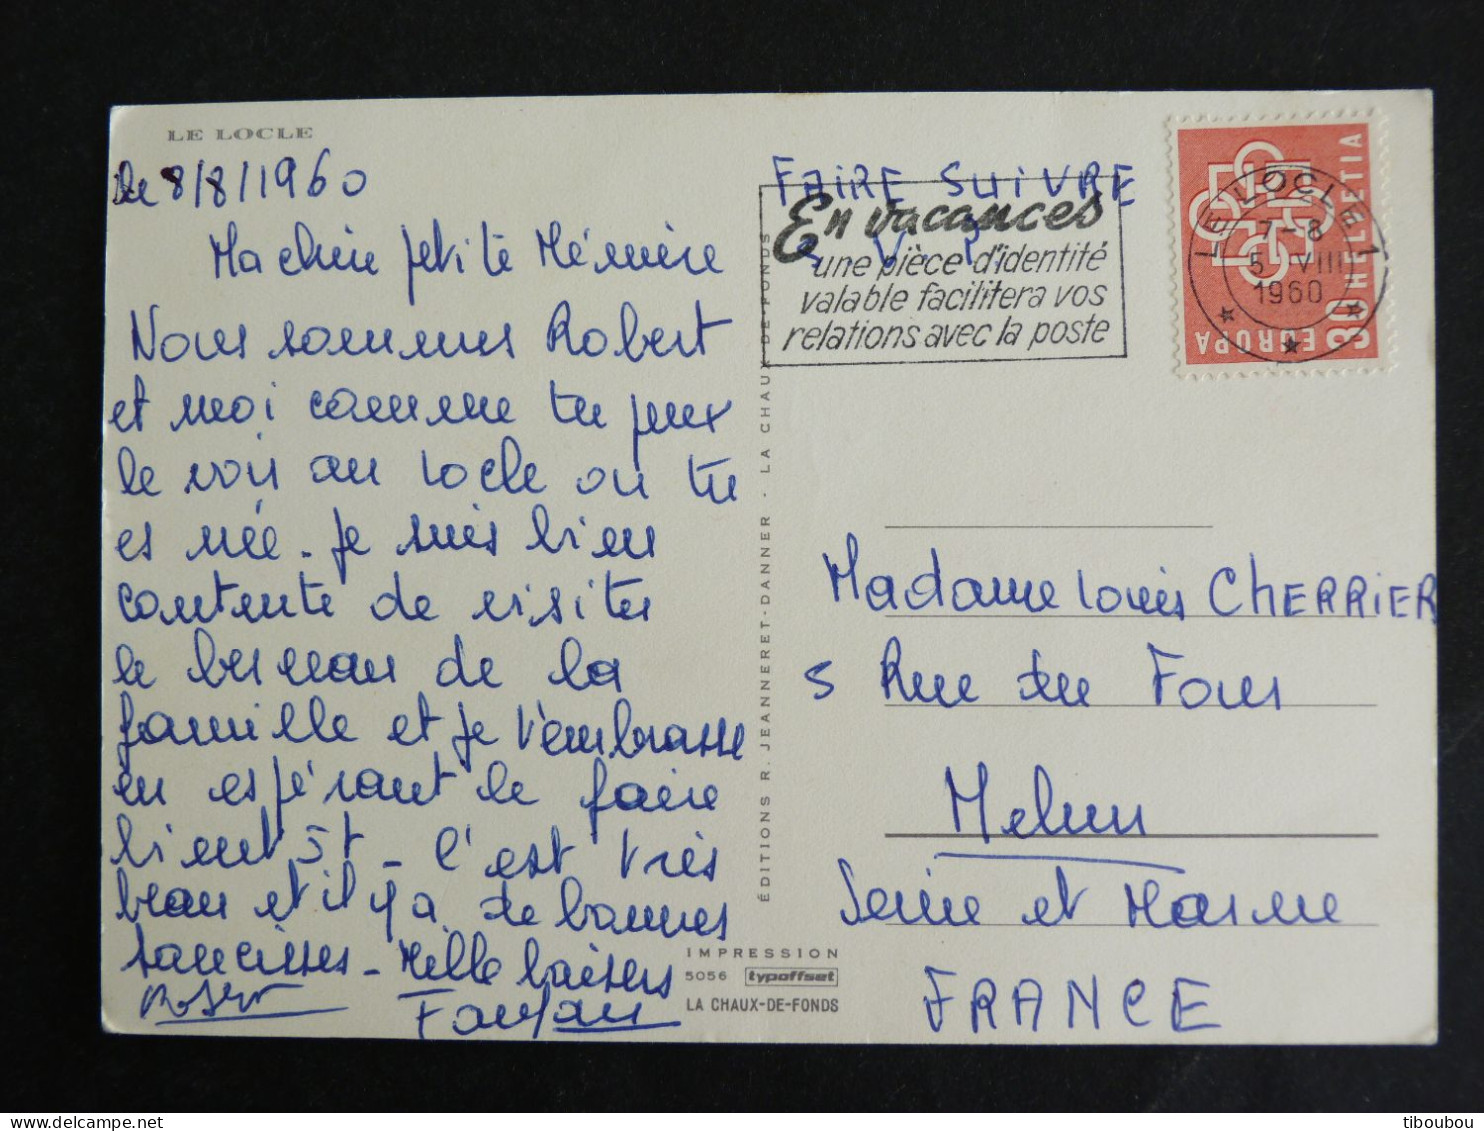 LE LOCLE
le 8/8/1960
Ma chère petite Mémère
Nous sommes Robert
et moi comme tu peux
le voir au Locle ou tu
es née. Je suis bien
contente de visiter
le berceau de la
famille et je t'embrasse
en espérant le faire
bientôt - C'est très
beau et il y a de bonnes
saucisses - Mille baisers
FAIRE SUIVRE
S V P
En vacances
une pièce d'identité
valable facilitera vos
relations avec la poste
LE LOCLE 1
7-8
5 VIII
1960
HELVETIA
EUROPA
30
ÉDITIONS R. JEANNERET-DANNER · LA CHAUX-DE-FONDS
Madame Louis CHERRIER
5 Rue du Four
Melun
Seine et Marne
FRANCE
IMPRESSION
5056 typoffset
LA CHAUX-DE-FONDS
tiboubou